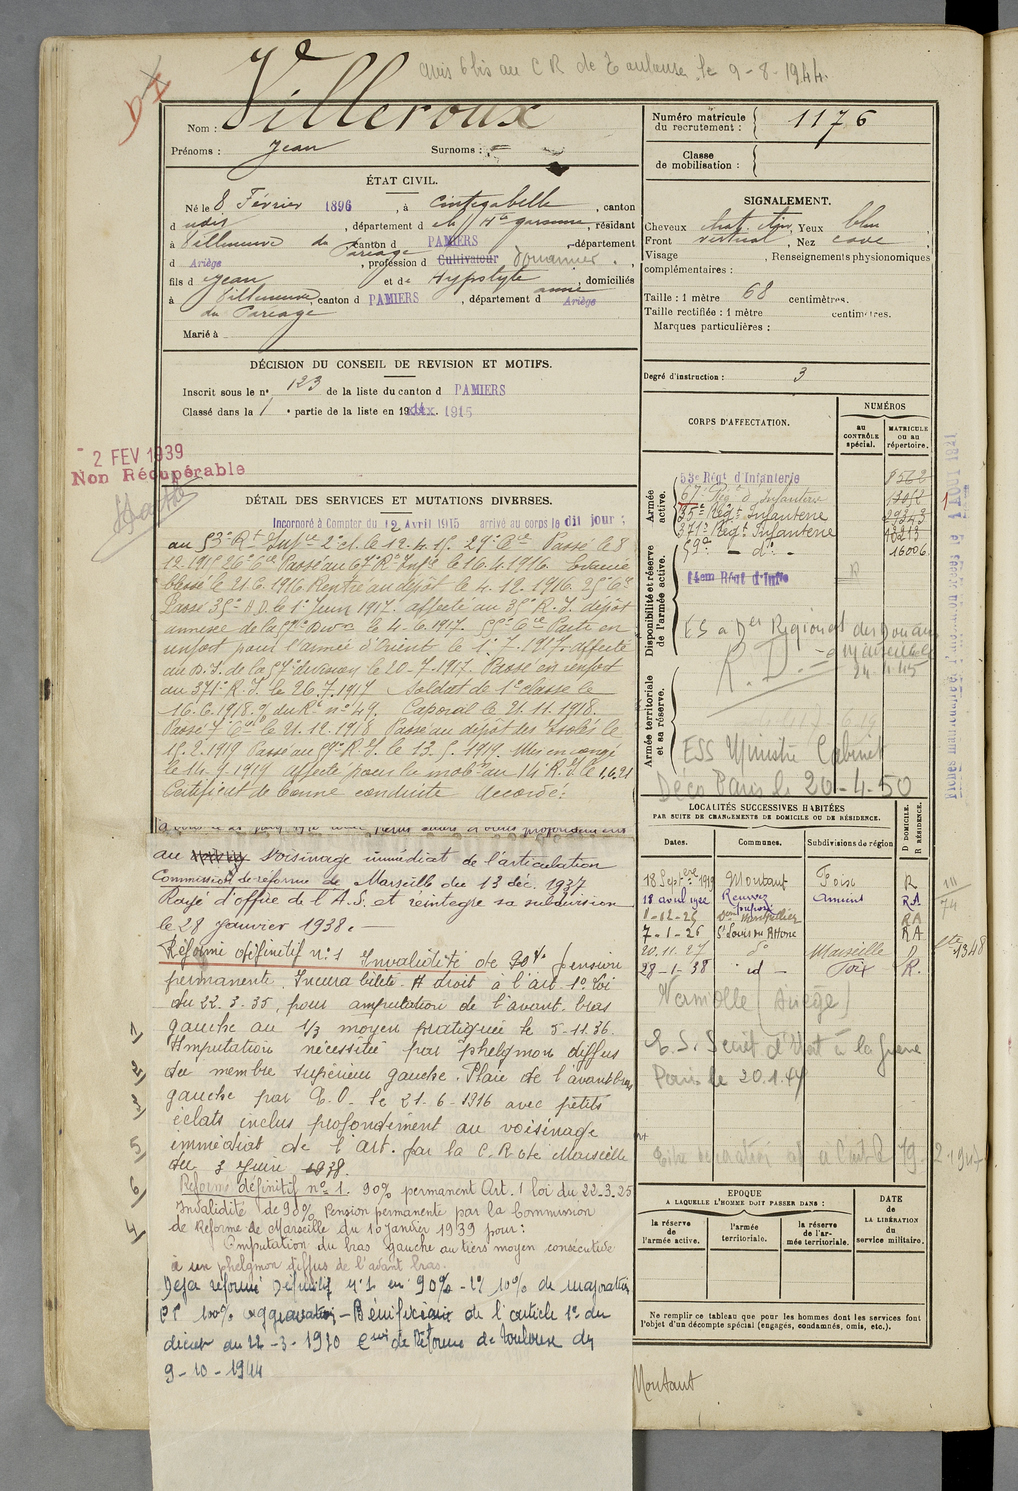 avis 6 bis au C R de Toulouse le 9-8-1944.
Nom : Villeroux
Prénoms : Jean Surnoms : =
Numéro matricule du recrutement : 1176
Classe de mobilisation :
ÉTAT CIVIL.
Né le 8 Février 1896, à Cintegabelle, canton
d udis, département d e la Hte garonne, résidant
à Villeneuve du Paréage canton d PAMIERS département
d Ariège, profession d Cultivateur Douannier.
fils d Jean et de Hypolyte anne, domiciliés
à Villeneuve du Paréage, canton d PAMIERS, département d Ariège
Marié à
SIGNALEMENT.
Cheveux chat., Yeux bleu
Front vertical, Nez cave
Visage , Renseignements physionomiques
complémentaires :
Taille : 1 mètre 68 centimètres.
Taille rectifiée : 1 mètre centimètres.
Marques particulières :
Degré d'instruction : 3
DÉCISION DU CONSEIL DE REVISION ET MOTIFS.
Inscrit sous le n° 123 de la liste du canton d PAMIERS
Classé dans la 1e partie de la liste en 19 1915
- 2 FEV 1939
Non Récupérable
DÉTAIL DES SERVICES ET MUTATIONS DIVERSES.
Incorporé à Compter du 12 Avril 1915 arrivé au corps le dit jour ;
au 53e Rt Infie 2e cl. le 12.4.15. 29e Cie Passé le 8
12.1915 26e Cie Passé au 67e Rt Infie le 16.4.1916. Evacué
blessé le 21.6.1916 Rentré au dépôt le 4.12.1916. 25e Cie
Passé 35e R.I. le 1er Juin 1917. affecté au 35e R.I. dépôt
annexe de la 57e Divon le 4-6.1917. 55e Cie Parti en
renfort pour l'armée d'Orient le 1.7.1917. affecté
au D.I. de la 57e division le 20-7.1917. Passé en renfort
au 371e R.I. le 26.7.1917 Soldat de 1e classe le
16.6.1918. O/ du Rt n° 49. Caporal le 21.11.1918.
Passé 7e Cie le 21.12.1918 Passé au dépôt des Isolés le
15.2.1919 Passé au 59e R.I. le 13.5.1919. Mis en congé
le 14.9.1919 affecté pour la mobon au 14e R.I. le 1.6.21
Certificat de bonne conduite Accordé.
au voisinage immédiat de l'articulation
Commission de réforme de Marseille du 13 déc. 1937
Rayé d'office de l'A.S. et réintègre sa subdivision
le 28 janvier 1938.-
Réformé définitif n°1 Invalidité de 90% Pension
permanente. Incurabilité. A droit à l'art. 1er loi
du 22-3-35, pour amputation de l'avant-bras
gauche au 1/3 moyen pratiquée le 5-11-36.
Amputation nécessitée par phelgmon diffus
du membre supérieur gauche. Plaie de l'avant-bras
gauche par E.O. le 21-6-1916 avec petits
éclats inclus profondément au voisinage
immédiat de l'art. par la C.R. de Marseille
du 3 Juin 1938.
Réformé définitif n° 1. 90% permanent Art. 1 loi du 22-3-25
Invalidité de 90% Pension permanente par la Commission
de Réforme de Marseille du 10 Janvier 1939 pour :
Amputation du bras gauche au tiers moyen consécutive
à un phelgmon diffus de l'avant bras.
Déjà réformé Définitif n°1 en 90% 10% de majoration
PP 100% aggravation - Bénéficiaire de l'article 1er du
décret du 22-3-1920 Con de Réforme de Toulouse du
9-10-1944
CORPS D'AFFECTATION.
NUMÉROS
AU CONTRÔLE spécial.
MATRICULE OU AU répertoire.
Armée active.
53e Régt d'Infanterie 8562
67e Régt d'Infanterie
35e Régt Infanterie
371e Régt Infanterie
59e - d° - 16006.
Disponibilité et réserve de l'armée active.
14em Régt d'Infie
ES à Don Régionale des Douanes
à Marseille
R. D.
Armée territoriale et sa réserve.
ESS Ministre Cabinet
Déco Paris le 20-4-50
LOCALITÉS SUCCESSIVES HABITÉES
PAR SUITE DE CHANGEMENTS DE DOMICILE OU DE RÉSIDENCE.
Dates. Communes. Subdivisions de région D DOMICILE. R RÉSIDENCE.
18 Septbre 1919 Montaut Foix R
18 avril 1922 Amiens RA
1-12-25 Montpellier RA
7-1-26 St Louis du Rhône RA
20.11.27 d° Marseille D
28-1-38 - id - Foix R.
Verniolle (Ariège)
E.S. Secrét d'Etat à la guerre
Paris le 20.1.47
EPOQUE
A LAQUELLE L'HOMME DOIT PASSER DANS :
la réserve de l'armée active.
l'armée territoriale.
la réserve de l'armée territoriale.
DATE de LA LIBÉRATION du service militaire.
Ne remplir ce tableau que pour les hommes dont les services font
l'objet d'un décompte spécial (engagés, condamnés, omis, etc.).
Montaut
1/ 2/ 3/ 5/ 6/ 4/